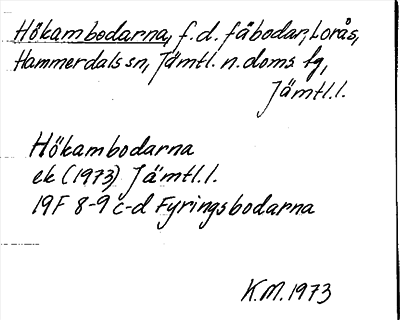 Hökambodarna, f.d. fäbodar, Lorås,
Hammerdals sn, Jämtl. n. doms lg,
Jämtl.l.
Hökambodarna
ek (1973) Jämtl.l.
19F 8-9 c-d Fyringsbodarna
K.M. 1973